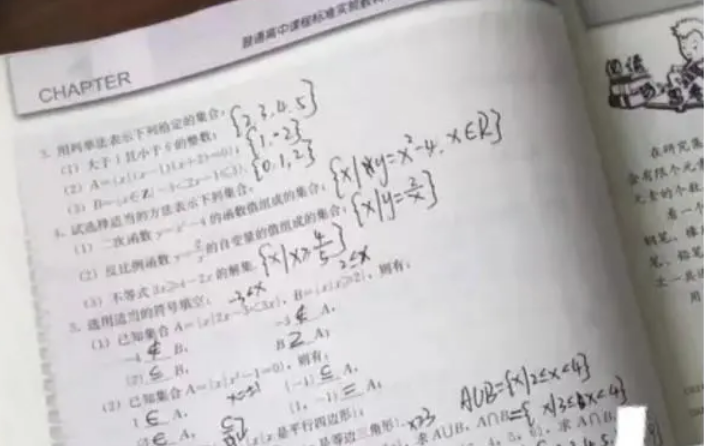 普通高中课程标准实验教科
CHAPTER
3. 用列举法表示下列给定的集合:
(1) 大于1且小于6的整数; {2,3,4,5}
(2) A={x|(x-1)(x+2)=0}; {1,-2}
(3) B={x∈Z|-3<2x-1≤3}. {0,1,2}
4. 试选择适当的方法表示下列集合:
(1) 二次函数 y=x²-4 的函数值组成的集合; {x|y=x²-4, x∈R}
(2) 反比例函数 y=2/x 的自变量的值组成的集合; {x|y=2/x}
(3) 不等式 3x≥4-2x 的解集. {x|x≥4/5}
5. 选用适当的符号填空:
-3<x
2≤x
(1) 已知集合 A={x|2x-3<3x}, B={x|x≥2}, 则有:
-4 ∉ B, -3 ∉ A,
{2} ⊆ B, B A;
(2) 已知集合 A={x|x²-1=0}, 则有:
x=±1
1 ∈ A, {-1} ⊆ A,
{1, -1} = A;
是平行四边形};
是等边三角形}
x≥3
A∪B={x|2≤x<4}
求A∪B, A∩B. ={x|3≤x<4}
求A∩B,
阅读
在研究集
含有限个元素
元素的个数
看一个
钢笔、橡
笔、铅笔
次一共进
用